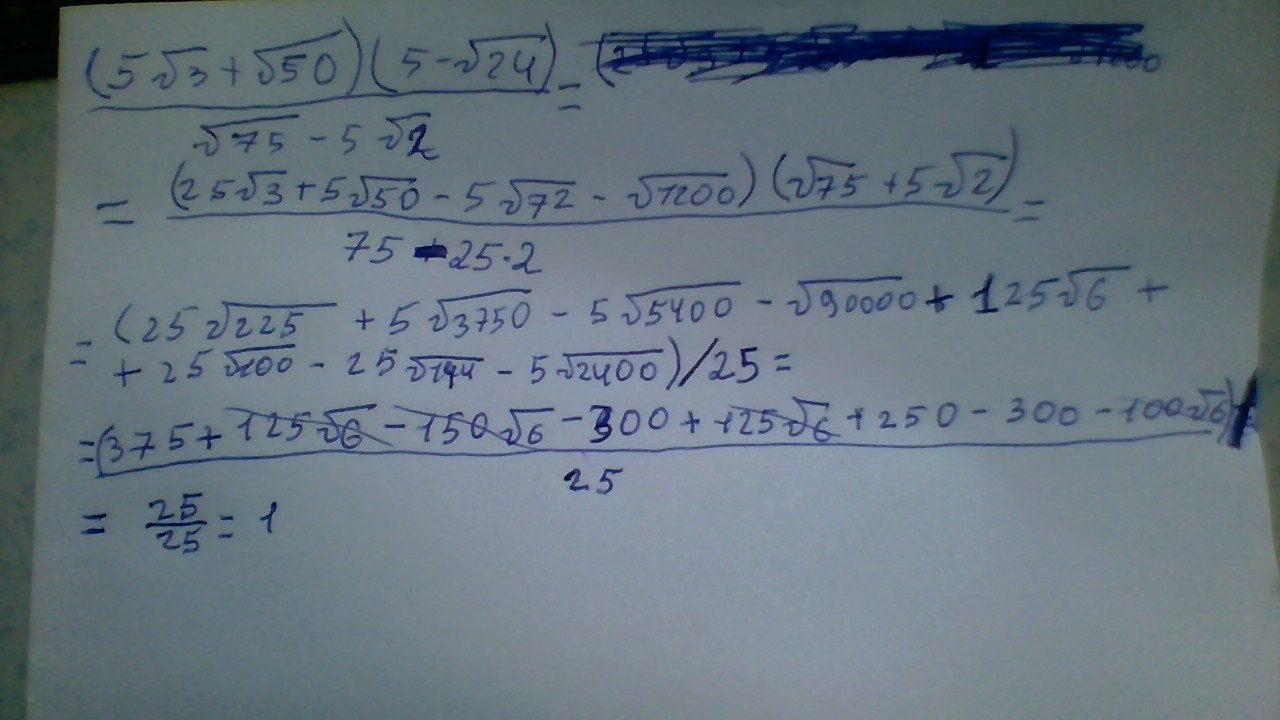 (5√3+√50)(5-√24)/(√75-5√2)=
=(25√3+5√50-5√72-√1200)(√75+5√2)/(75-25·2)=
=(25√225+5√3750-5√5400-√90000+125√6+
+25√100-25√144-5√2400)/25=
=(375+125√6-150√6-300+125√6+250-300-100√6)/25
=25/25=1